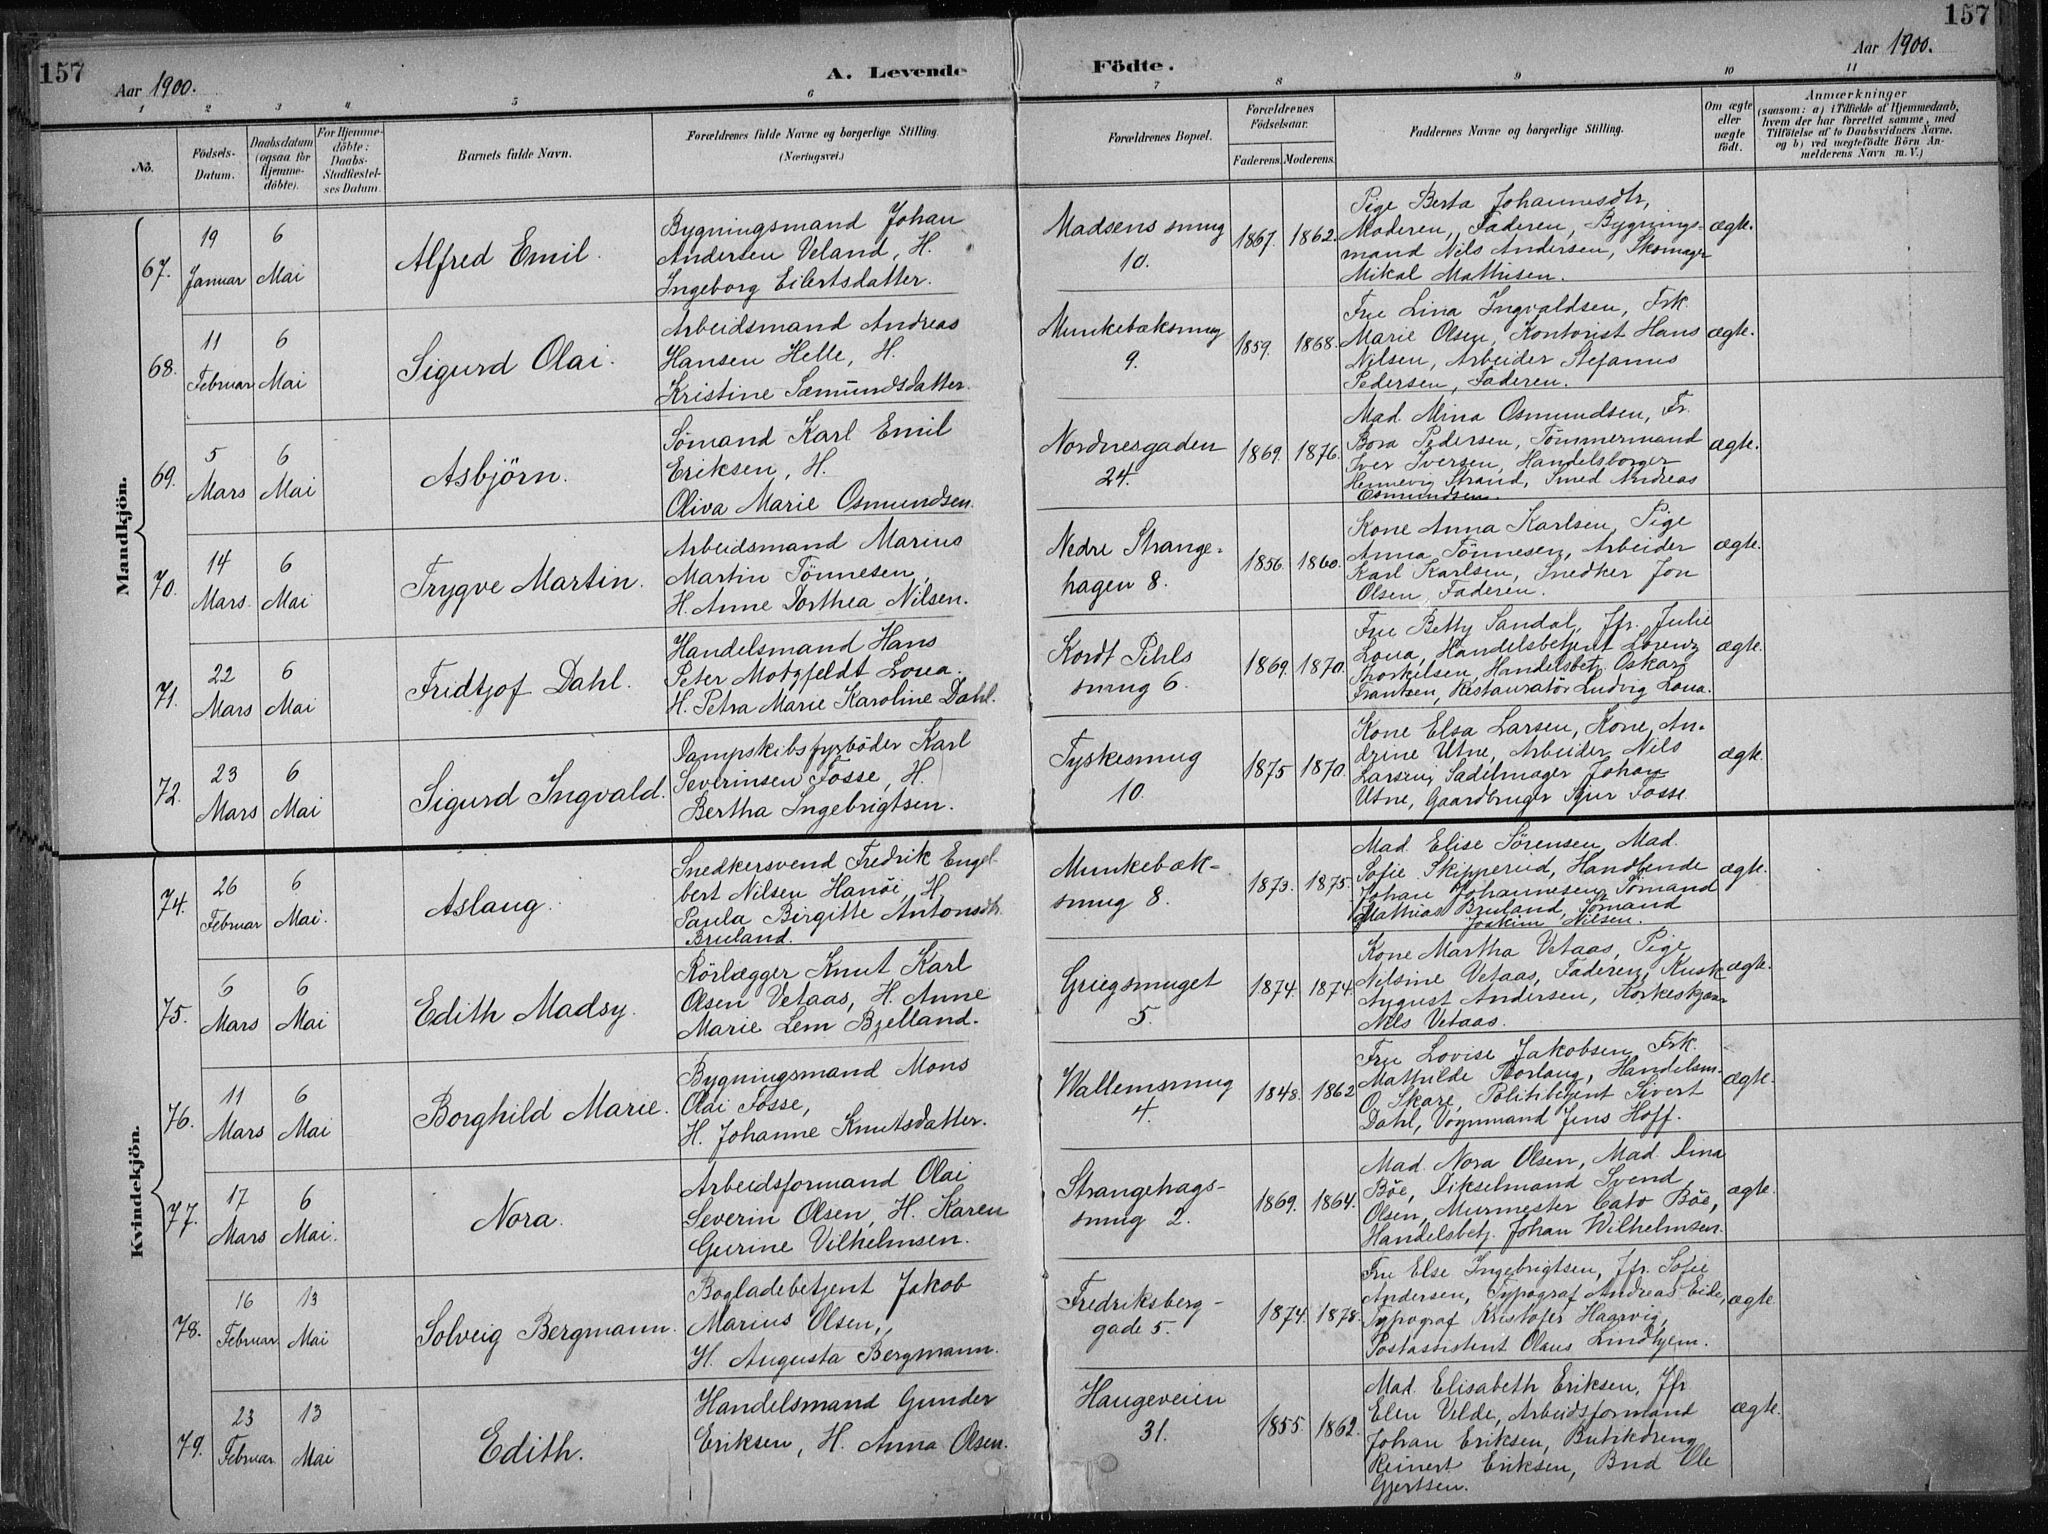 157
Aar 1900.
A. Levende
Födte.
157
Aar 1900.
1 2 3 4 5 6 7 8 9 10 11
No.
Födsels-
Datum.
Daabsdatum
(ogsaa for
Hjemme-
döbte).
For Hjemme-
döbte:
Daabs-
Stadfæstel-
ses Datum.
Barnets fulde Navn.
Forældrenes fulde Navne og borgerlige Stilling.
(Næringsvei.)
Forældrenes Bopæl.
Forældrenes
Födselsaar.
Faderens. Moderens.
Faddernes Navne og borgerlige Stilling.
Om ægte
eller
uægte
födt.
Anmærkninger
(saasom: a) i Tilfælde af Hjemmedaab,
hvem der har forrettet samme, med
Tilföielse af to Daabsvidners Navne.
og b) ved uægtefödte Börn An-
melderens Navn m. V.)
Mandkjön.
67.
19
Januar
6
Mai
Alfred Emil.
Bygningsmand Johan
Andersen Veland, H.
Ingeborg Eilertsdatter.
Madsens smug
10.
1867. 1862.
Pige Berta Johannesdtr,
Moderen, Faderen, Bygnings-
mand Nils Andersen, Skomager
Mikal Mathisen.
ægte.
68.
11
Februar
6
Mai
Sigurd Olai.
Arbeidsmand Andreas
Hansen Helle, H.
Kristine Sæmundsdatter.
Munkebæksmug
9.
1859. 1868.
Fru Lina Ingvaldsen, Frk.
Marie Olsen, Kontorist Hans
Nilsen, Arbeider Stefanus
Pedersen, Faderen.
ægte.
69.
5
Mars
6
Mai
Asbjörn.
Sömand Karl Emil
Eriksen, H.
Oliva Marie Osmundsen.
Nordnesgaden
24.
1869. 1876.
Mad. Mina Osmundsen, Fr.
Bora Pedersen, Tömmermand
Iver Iversen, Handelsborger
Hennevig Strand, Smed Andreas
Osmundsen.
ægte.
70.
14
Mars.
6
Mai
Trygve Martin.
Arbeidsmand Marius
Martin Tönnesen,
H. Anne Dorthea Nilsen.
Nedre Strange-
hagen 8.
1856. 1860.
Kone Anna Karlsen, Pige
Anna Tönnesen, Arbeider
Karl Karlsen, Snedker Jon
Olsen, Faderen.
ægte.
71.
22
Mars
6
Mai
Fridtjof Dahl.
Handelsmand Hans
Peter Motzfeldt Loua.
H. Petra Marie Karoline Dahl.
Kordt Pihls
smug 6.
1869. 1870.
Fru Betty Sandal, Jfr. Julie
Loua, Handelsbetjent Lorenz
Thorkilsen, Handelsbetj. Oskar
Frantzen, Restauratör Ludvig Loua.
ægte.
72.
23
Mars
6
Mai
Sigurd Ingvald.
Dampskibsfyrböder Karl
Severinsen Fosse, H.
Bertha Ingebrigtsen.
Tyskesmug
10.
1875 1870.
Kone Elsa Larsen, Kone An-
drine Utne, Arbeider Nils
Larsen, Sadelmager Johan
Utne, Gaardbruger Sjur Fosse.
ægte.
Kvindekjön.
74.
26
Februar
6
Mai.
Aslaug.
Snedkersvend Fredrik Engel-
bert Nilsen Hanöi, H.
Paula Birgitte Antonsdtr.
Bruland.
Munkebæk-
smug 8.
1873. 1875.
Mad Elise Sörensen, Mad.
Sofie Skipperud, Handlende
Johan Johannesen, Sömand
Mathias Bruland, Sömand
Joakim Nilsen.
ægte.
75.
6
Mars
6
Mai
Edith Madsy.
Rörlægger Knut Karl
Olsen Vetaas, H. Anne
Marie Lem Bjelland.
Griegsmuget
5.
1874. 1874.
Kone Martha Vetaas, Pige
Nilsine Vetaas, Faderen, Kusk
August Andersen,
Nils Vetaas.
ægte.
76.
11
Mars
6
Mai
Borghild Marie.
Bygningsmand Mons
Olai Fosse,
H. Johanne Knutsdatter.
Wallemsmug
4.
1848. 1862
Fru Lovise Jakobsen, Frk.
Mathilde Storlaug, Handelsm.
O. Skare, Politibetjent Sivert
Dahl, Vognmand Jens Hoff.
ægte.
77.
17
Mars
6
Mai.
Nora.
Arbeidsformand Olai
Severin Olsen, H. Karen
Gurine Vilhelmsen.
Strangehags-
smug 2.
1869. 1864.
Mad. Nora Olsen, Mad. Dina
Böe, Dikselmand Svend
Olsen, Murmester Cato Böe,
Handelsbetj. Johan Wilhelmsen.
ægte.
78.
16
Februar
13
Mai
Solveig Bergmann.
Bogladebetjent Jakob
Marius Olsen,
H. Augusta Bergmann.
Fredriksberg-
gade 5.
1874. 1878.
Fru Else Ingebrigtsen, Jfr. Sofie
Andersen, Typograf Andreas Eide,
Typograf Kristofer Haarvig,
Postassistent Olaus Lindhjem.
ægte.
79.
23
Februar
13
Mai
Edith.
Handelsmand Gunder
Eriksen, H. Anna Olsen.
Haugeveien
31.
1855. 1862.
Mad. Elisabeth Eriksen, Jfr
Elen Velde, Arbeidsformand
Johan Eriksen, Butikdreng
Reinert Eriksen, Bud Ole
Gjertsen.
ægte.